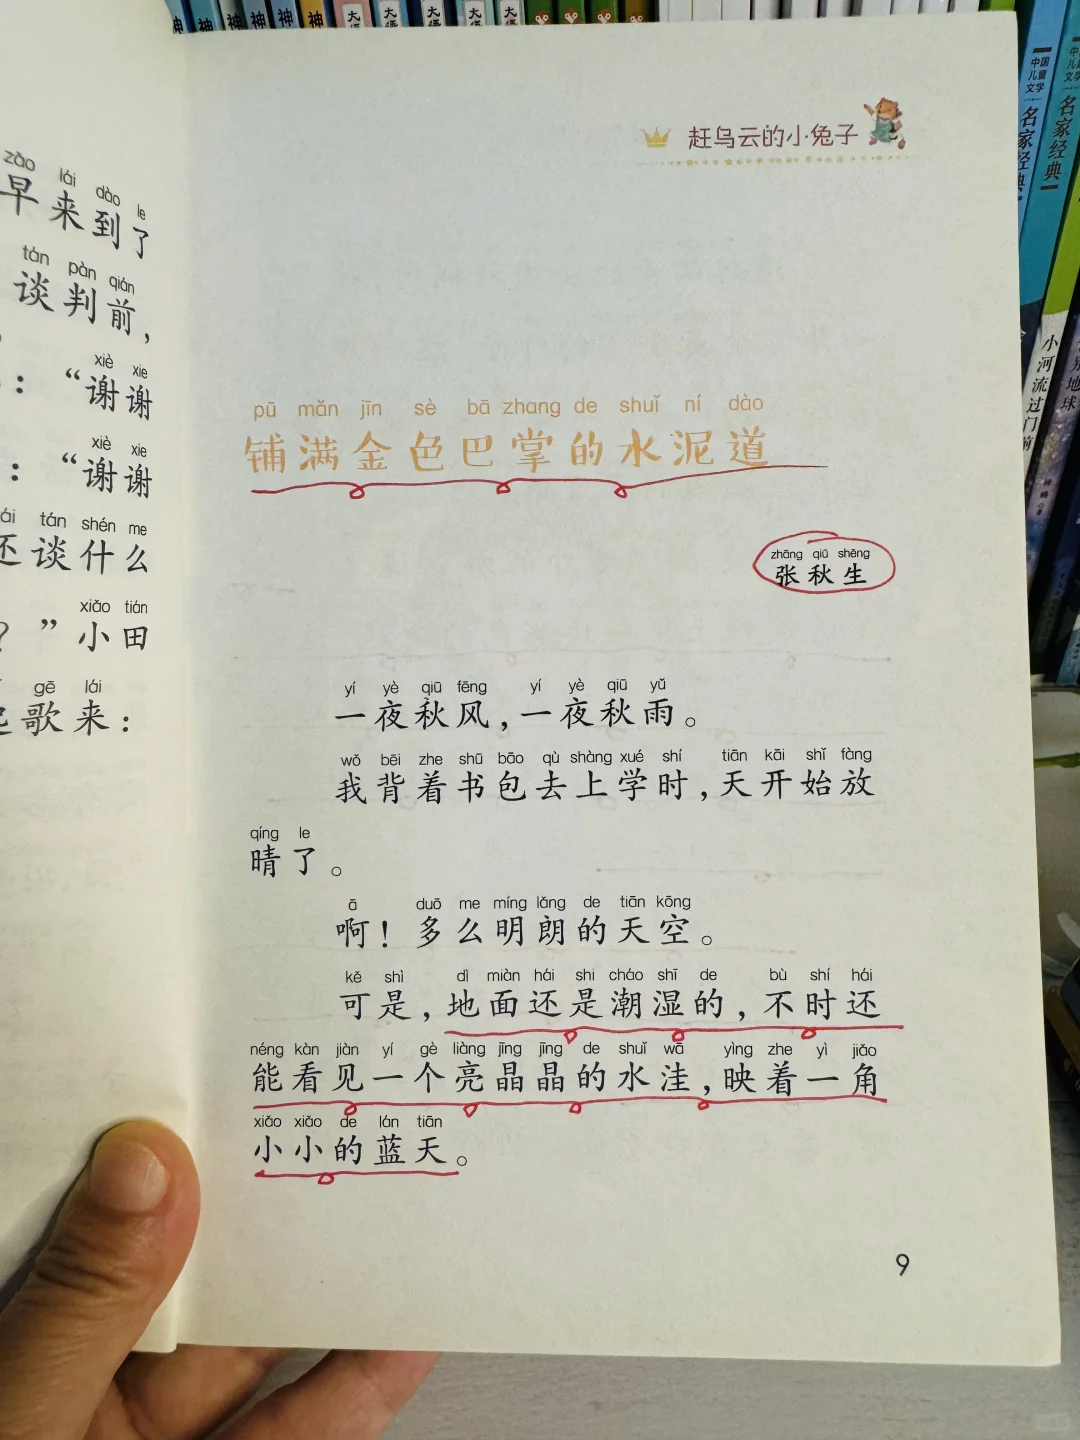 zǎo lái dào le
早来到了
tán pàn qián
谈判前，
xiè xie
：“谢谢
xiè xie
：“谢谢
tán shén me
还谈什么
xiǎo tián
？”小田
gē lái
歌来：
赶乌云的小兔子
pū mǎn jīn sè bā zhang de shuǐ ní dào
铺满金色巴掌的水泥道
zhāng qiū shēng
张秋生
yí yè qiū fēng yí yè qiū yǔ
一夜秋风，一夜秋雨。
wǒ bēi zhe shū bāo qù shàng xué shí tiān kāi shǐ fàng
我背着书包去上学时，天开始放
qíng le
晴了。
ā duō me míng lǎng de tiān kōng
啊！多么明朗的天空。
kě shì dì miàn hái shi cháo shī de bù shí hái
可是，地面还是潮湿的，不时还
néng kàn jiàn yí gè liàng jīng jīng de shuǐ wā yìng zhe yì jiǎo
能看见一个亮晶晶的水洼，映着一角
xiǎo xiǎo de lán tiān
小小的蓝天。
9
神 神 神 神 神 神
大 大 大 大 大
中国儿童文学
名家经典
小河流过门前
中国儿童文学
名家经典